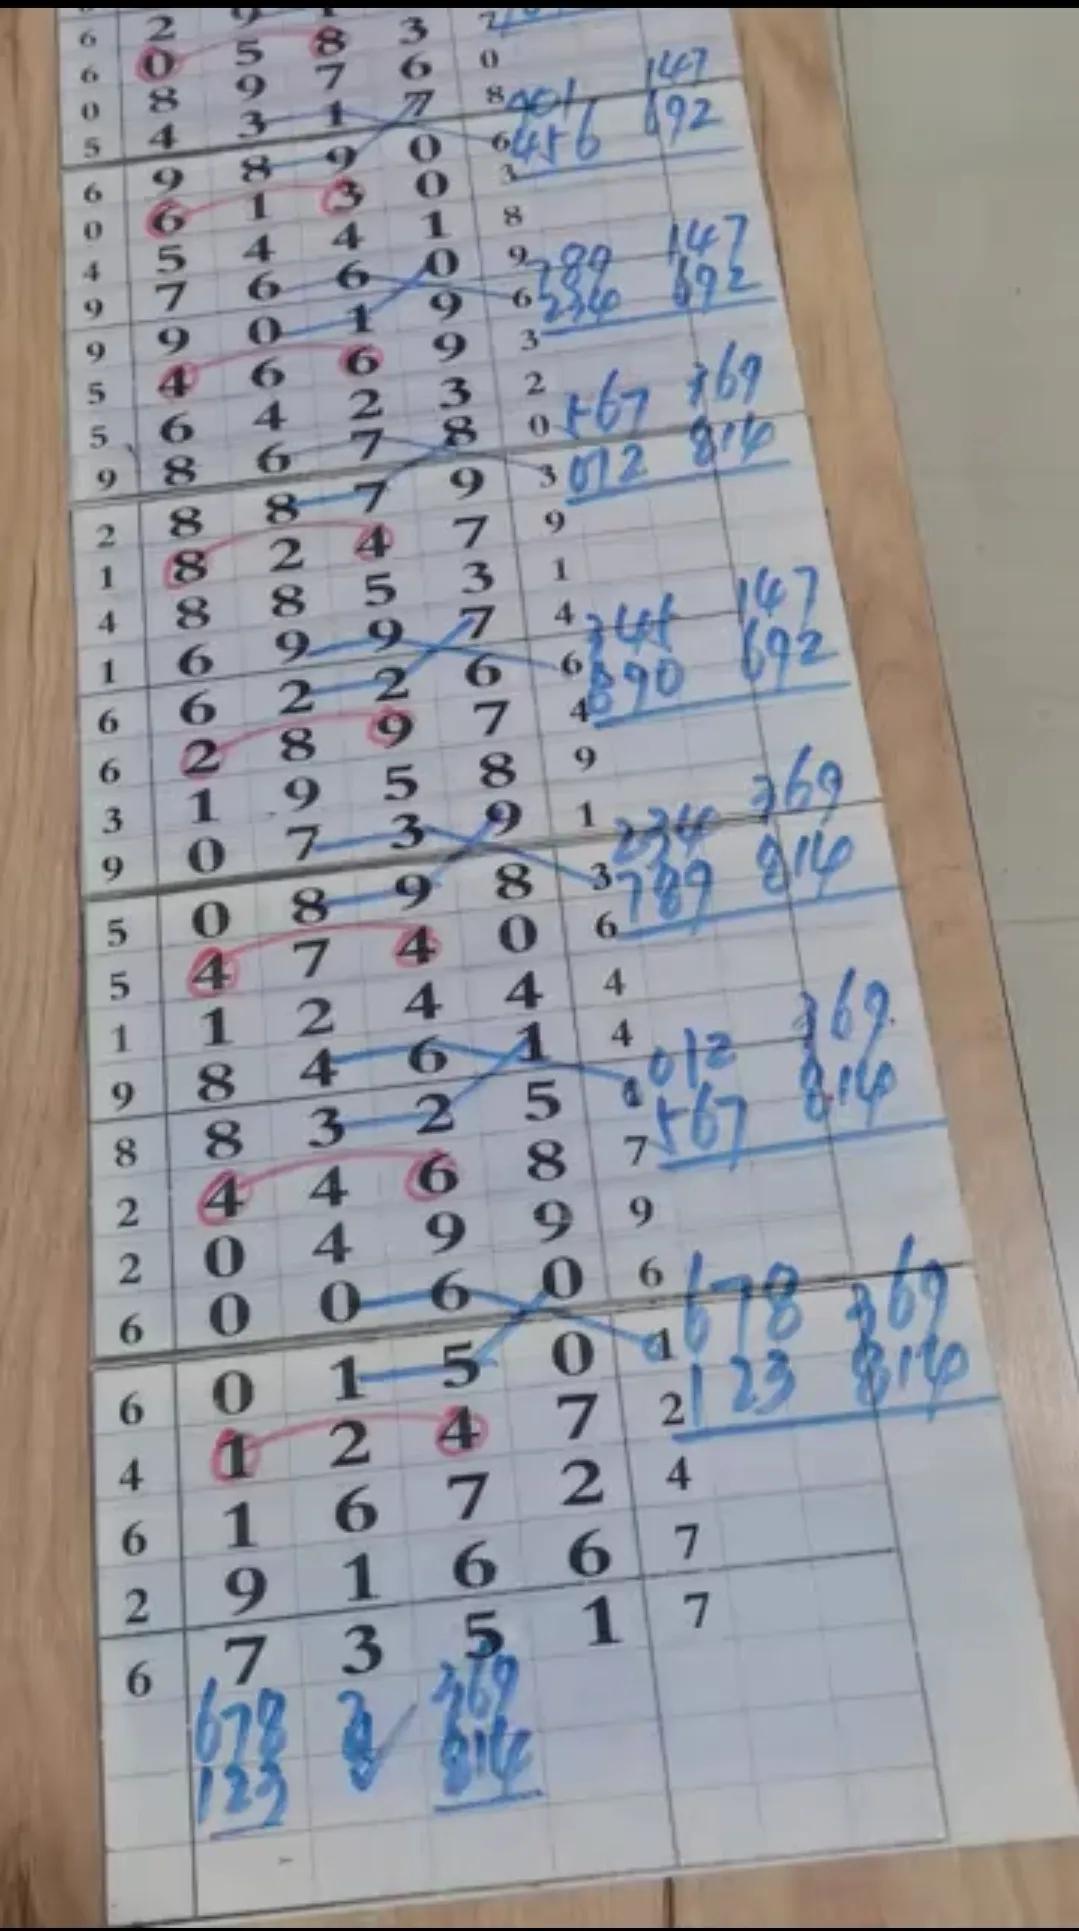 6 2 9
6 0 5 8 3 7
0 8 9 7 6 0 147
5 4 3 1 7 8 901 692
6 9 8 9 0 6 456
0 6 1 3 0 3
4 5 4 4 1 8 147
9 7 6 6 0 9 789 692
9 9 0 1 9 6 234
5 4 6 6 9 3
5 6 4 2 3 2 567 369
9 8 6 7 8 0 012 814
2 8 8 7 9 3
1 8 2 4 7 9
4 8 8 5 3 1 147
1 6 9 9 7 4 345 692
6 6 2 2 6 6 890
6 2 8 9 7 4
3 1 9 5 8 9 369
9 0 7 3 9 1 234 814
5 0 8 9 8 3 789
5 4 7 4 0 6
1 1 2 4 4 4 369
9 8 4 6 1 4 012 814
8 8 3 2 5 567
2 4 4 6 8 7
2 0 4 9 9 9
6 0 0 6 0 6 678 369
6 0 1 5 0 1 123 814
4 1 2 4 7 2
6 1 6 7 2 4
2 9 1 6 6 7
6 7 3 5 1 7
678 369
123 814